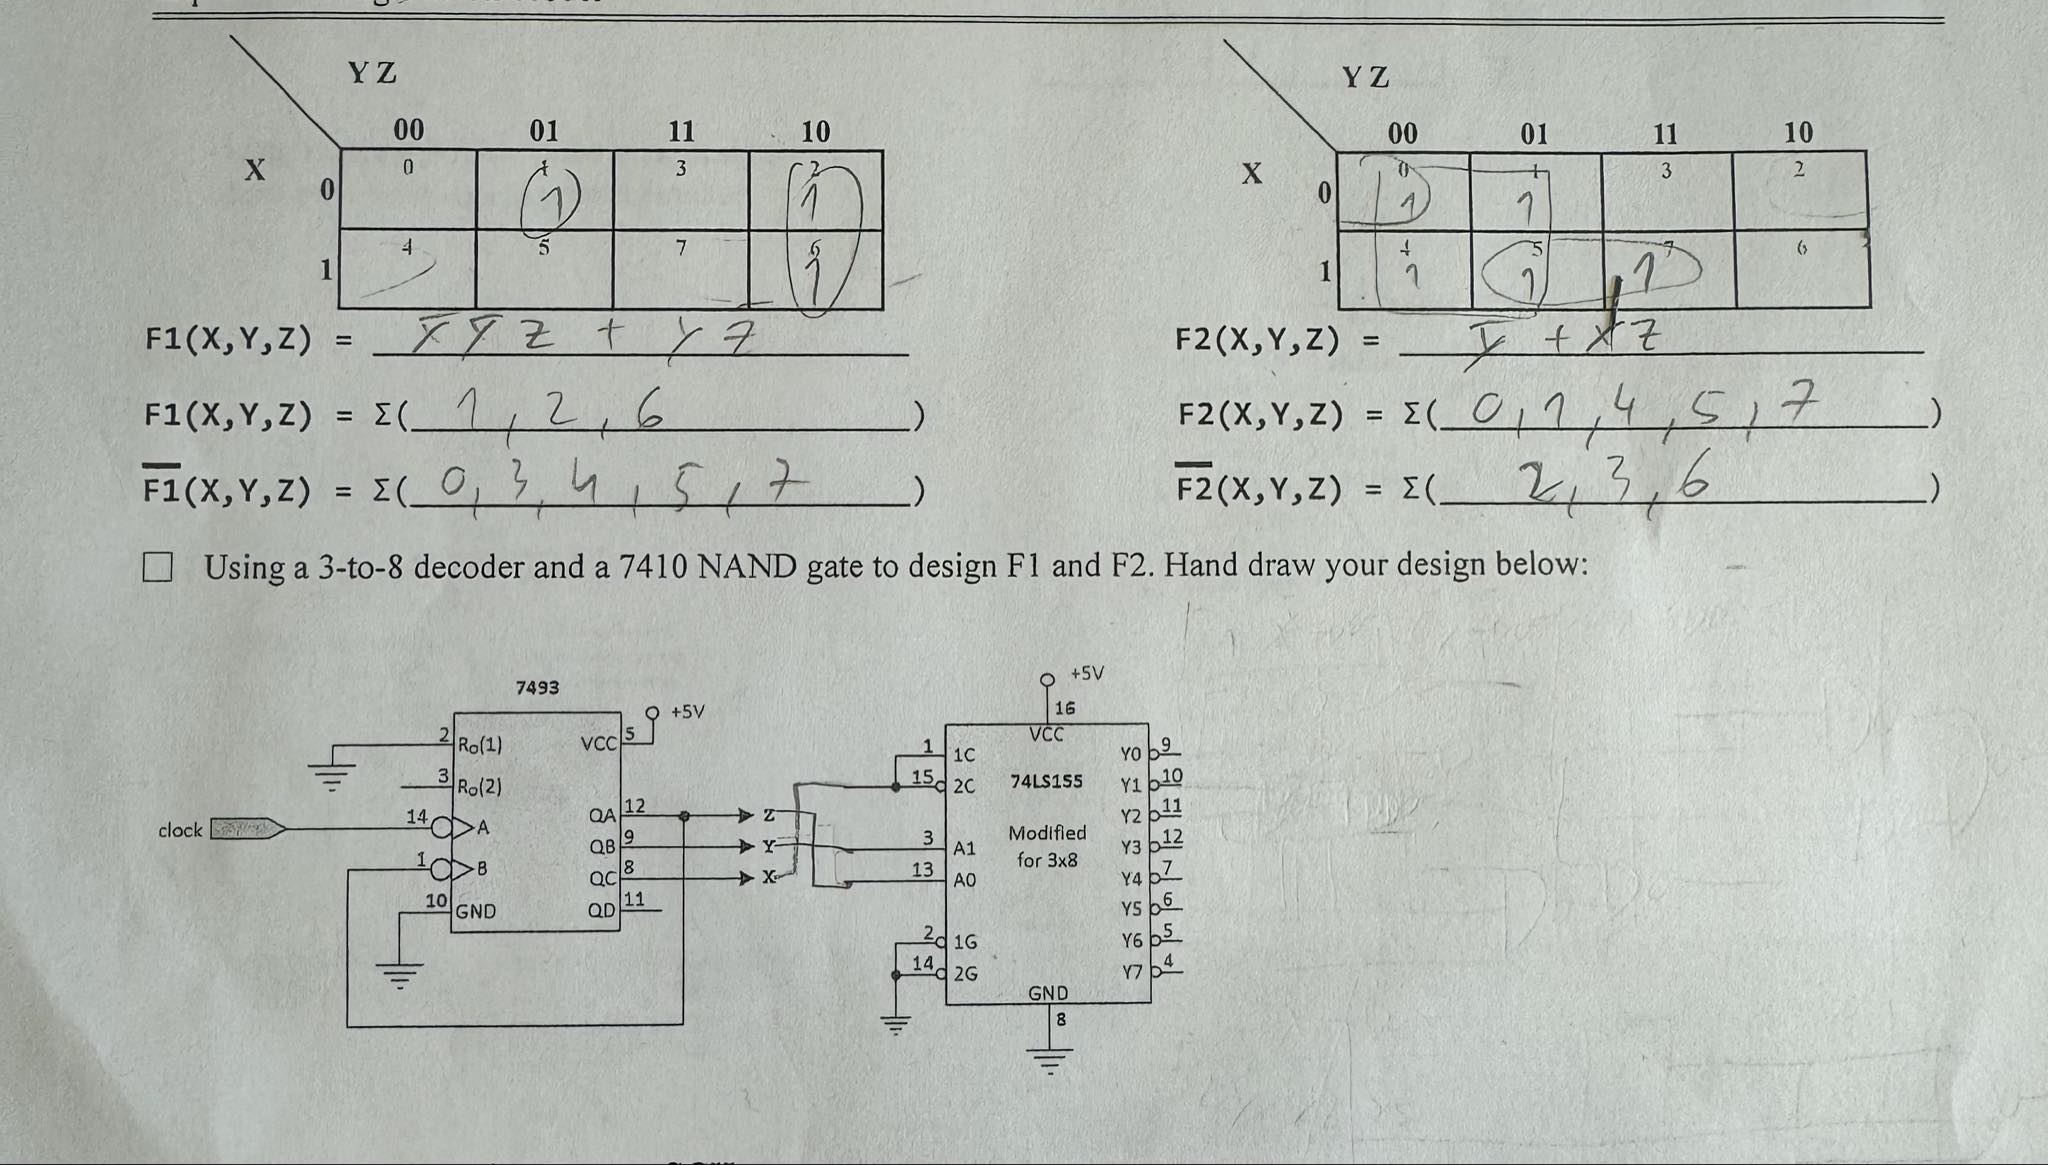 Y Z
00 01 11 10
X 0 0 1 1 3 2 1
1 4 5 7 6 1
F1(X,Y,Z) = X̅ Y̅ Z + Y Z
F1(X,Y,Z) = Σ( 1, 2, 6 )
F̅1̅(X,Y,Z) = Σ( 0, 3, 4, 5, 7 )
Y Z
00 01 11 10
X 0 0 1 1 1 3 2
1 4 1 5 1 7 1 6
F2(X,Y,Z) = Y̅ + X Z
F2(X,Y,Z) = Σ( 0, 1, 4, 5, 7 )
F̅2̅(X,Y,Z) = Σ( 2, 3, 6 )
Using a 3-to-8 decoder and a 7410 NAND gate to design F1 and F2. Hand draw your design below:
7493
+5V
2 Ro(1) VCC 5
3 Ro(2)
clock 14 A
QA 12 Z
1 B
QB 9 Y
QC 8 X
10 GND
QD 11
+5V
16
VCC
74LS155
Modified
for 3x8
1 1C
15 2C
3 A1
13 A0
2 1G
14 2G
Y0 9
Y1 10
Y2 11
Y3 12
Y4 7
Y5 6
Y6 5
Y7 4
GND
8